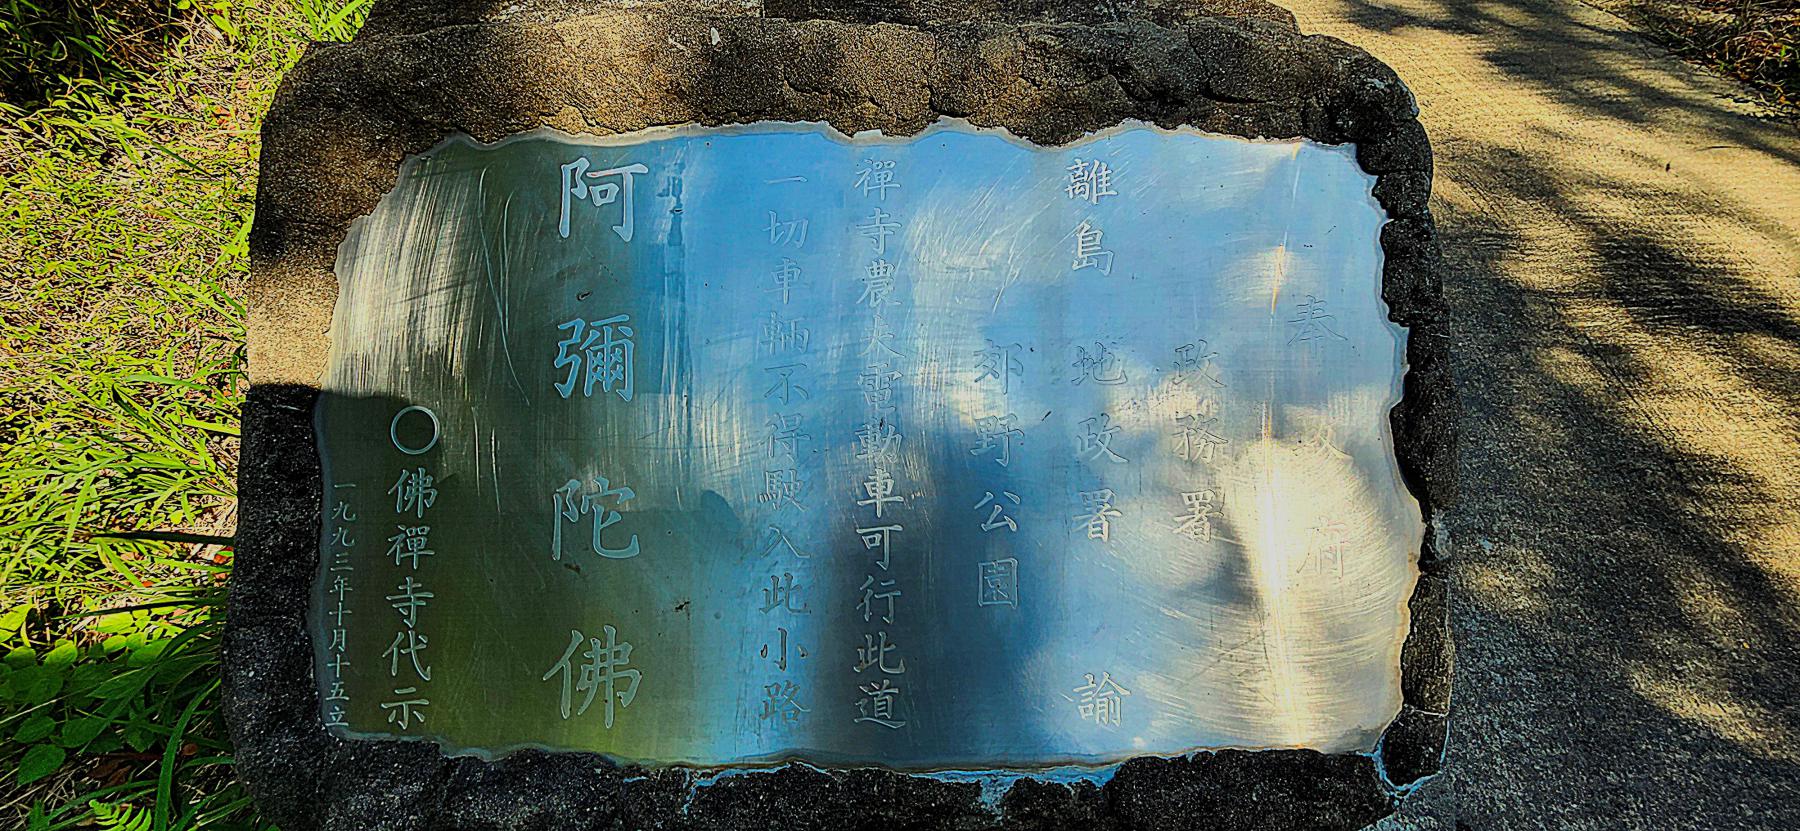 奉政府
政務署
離島地政署諭
郊野公園
禪寺農夫電動車可行此道
一切車輛不得駛入此小路
阿彌陀佛
〇佛禪寺代示
一九九三年十月十五立